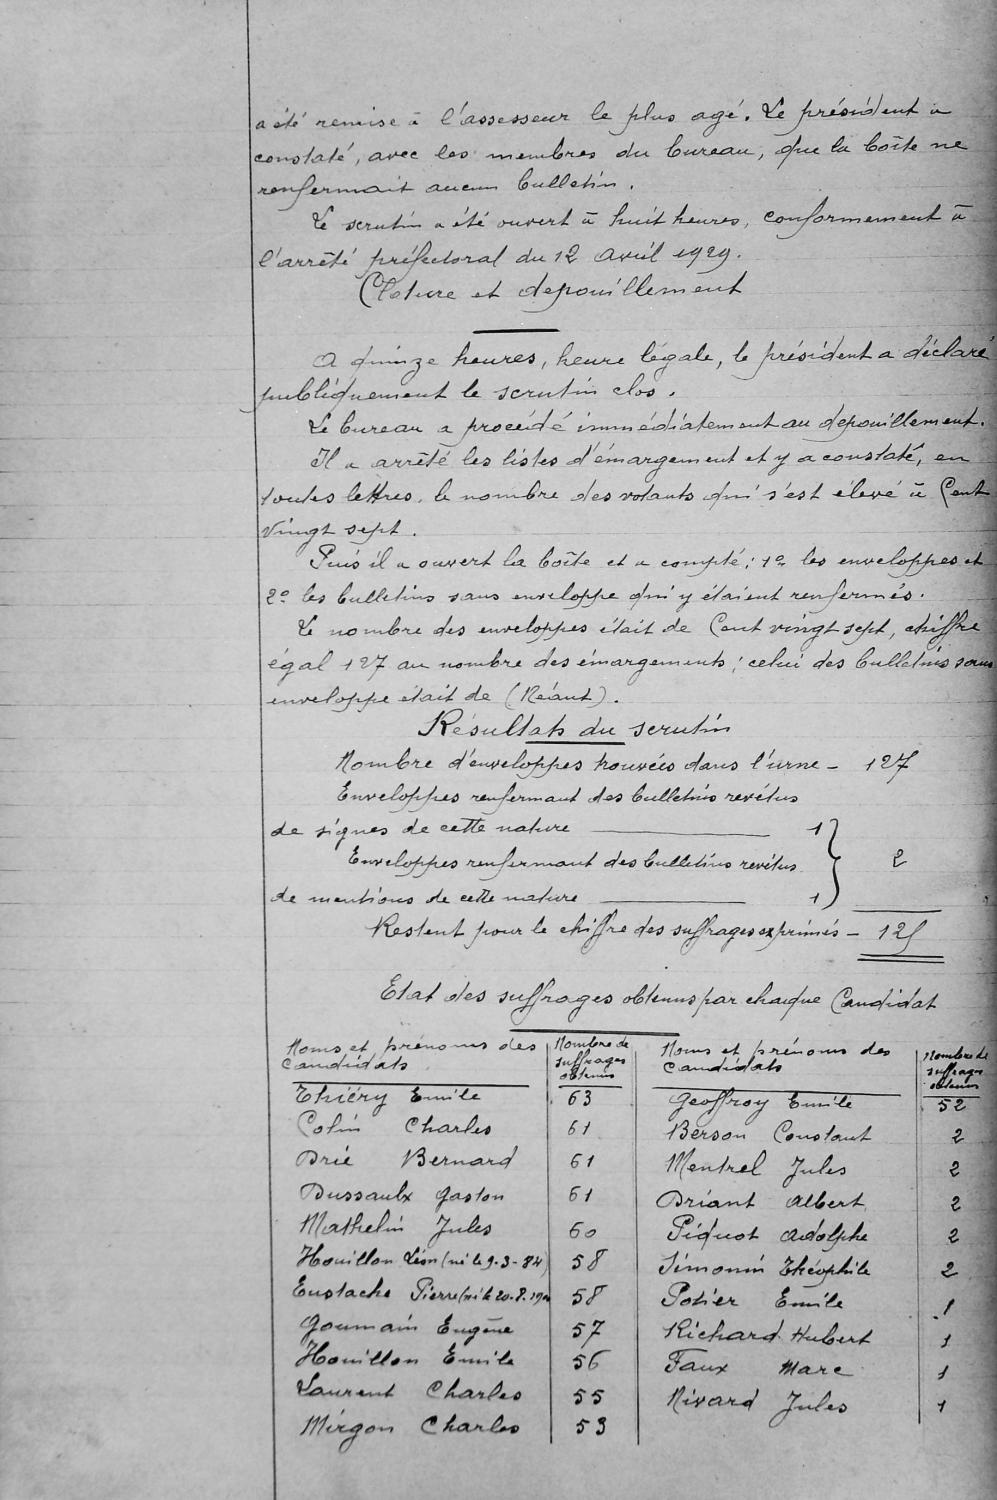 a été remise à l'assesseur le plus agé. Le président a
constaté, avec les membres du bureau, que la boîte ne
renfermait aucun bulletin.
Le scrutin a été ouvert à huit heures, conformement à
l'arrêté préfectoral du 12 avril 1929.
Cloture et depouillement
A quinze heures, heure légale, le président a déclaré
publiquement le scrutin clos.
Le bureau a procédé immédiatement au depouillement.
Il a arrêté les listes d'émargement et y a constaté, en
toutes lettres, le nombre des votants qui s'est élevé à Cent
vingt sept.
Puis il a ouvert la boîte et a compté; 1° les enveloppes et
2° les bulletins sans enveloppe qui y étaient renfermés.
Le nombre des enveloppes était de Cent vingt sept, chiffre
égal 127 au nombre des émargements; celui des bulletins sans
enveloppe était de (Néant).
Résultats du scrutin
Nombre d'enveloppes trouvées dans l'urne - 127
Enveloppes renfermant des bulletins revêtus
de signes de cette nature 1
Enveloppes renfermant des bulletins revêtus 2
de mentions de cette nature 1
Restent pour le chiffre des suffrages exprimés - 125
Etat des suffrages obtenus par chaque Candidat
Noms et prénoms des Candidats Nombre de suffrages obtenus Noms et prénoms des Candidats Nombre de suffrages obtenus
Thiéry Emile 63 Geoffroy Emile 52
Colin Charles 61 Berson Constant 2
Drié Bernard 61 Mentrel Jules 2
Dussaulx Gaston 61 Briant Albert 2
Mathelin Jules 60 Piquot Adolphe 2
Houillon Léon (né le 9-3-84) 58 Simonin Théophile 2
Eustache Pierre (né le 20.8.190 58 Potier Emile 1
Goumain Eugène 57 Richard Hubert 1
Houillon Emile 56 Faux Marc 1
Laurent Charles 55 Nivard Jules 1
Mirgon Charles 53